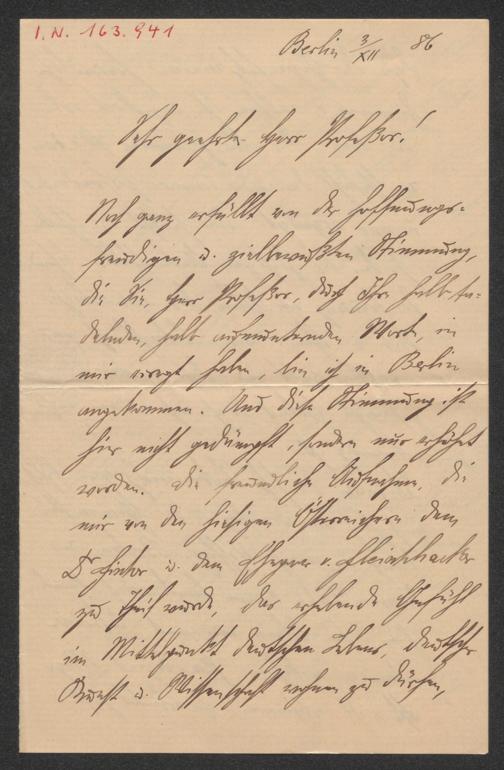 I.N. 163.941
Berlin 3/XII 86
Sehr geehrter Herr Professor!
Noch ganz erfüllt von der hoffnungs-
freudigen u. zielbewußten Stimmung,
die Sie, Herr Professor, durch Ihr halb ta-
delnden, halb aufmunternden Worte, in
mir erregt haben, bin ich in Berlin
angekommen. Und diese Stimmung ist
hier nicht gedämpft, sondern nur erhöht
worden. Die freundliche Aufnahme, die
mir von den hiesigen Österreichern dem
Dr u. dem v. Fleischhacker
zu Theil wurde, das erhebende Gefühl
im Mittelpunkt deutschen Lebens, deutscher
Kunst u. Wissenschaft wohnen zu dürfen,